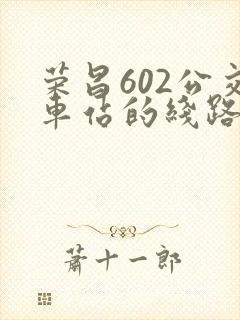 荣昌602公交
车佔的线路
萧十一郎